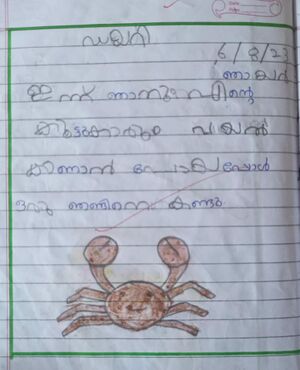 ഡയറി
6/8/23
ഞായർ
ഇന്ന് ഞാനും എന്റെ
കൂട്ടുകാരും വയൽ
കാണാൻ പോയപ്പോൾ
ഒരു ഞണ്ടിനെ കണ്ടു.